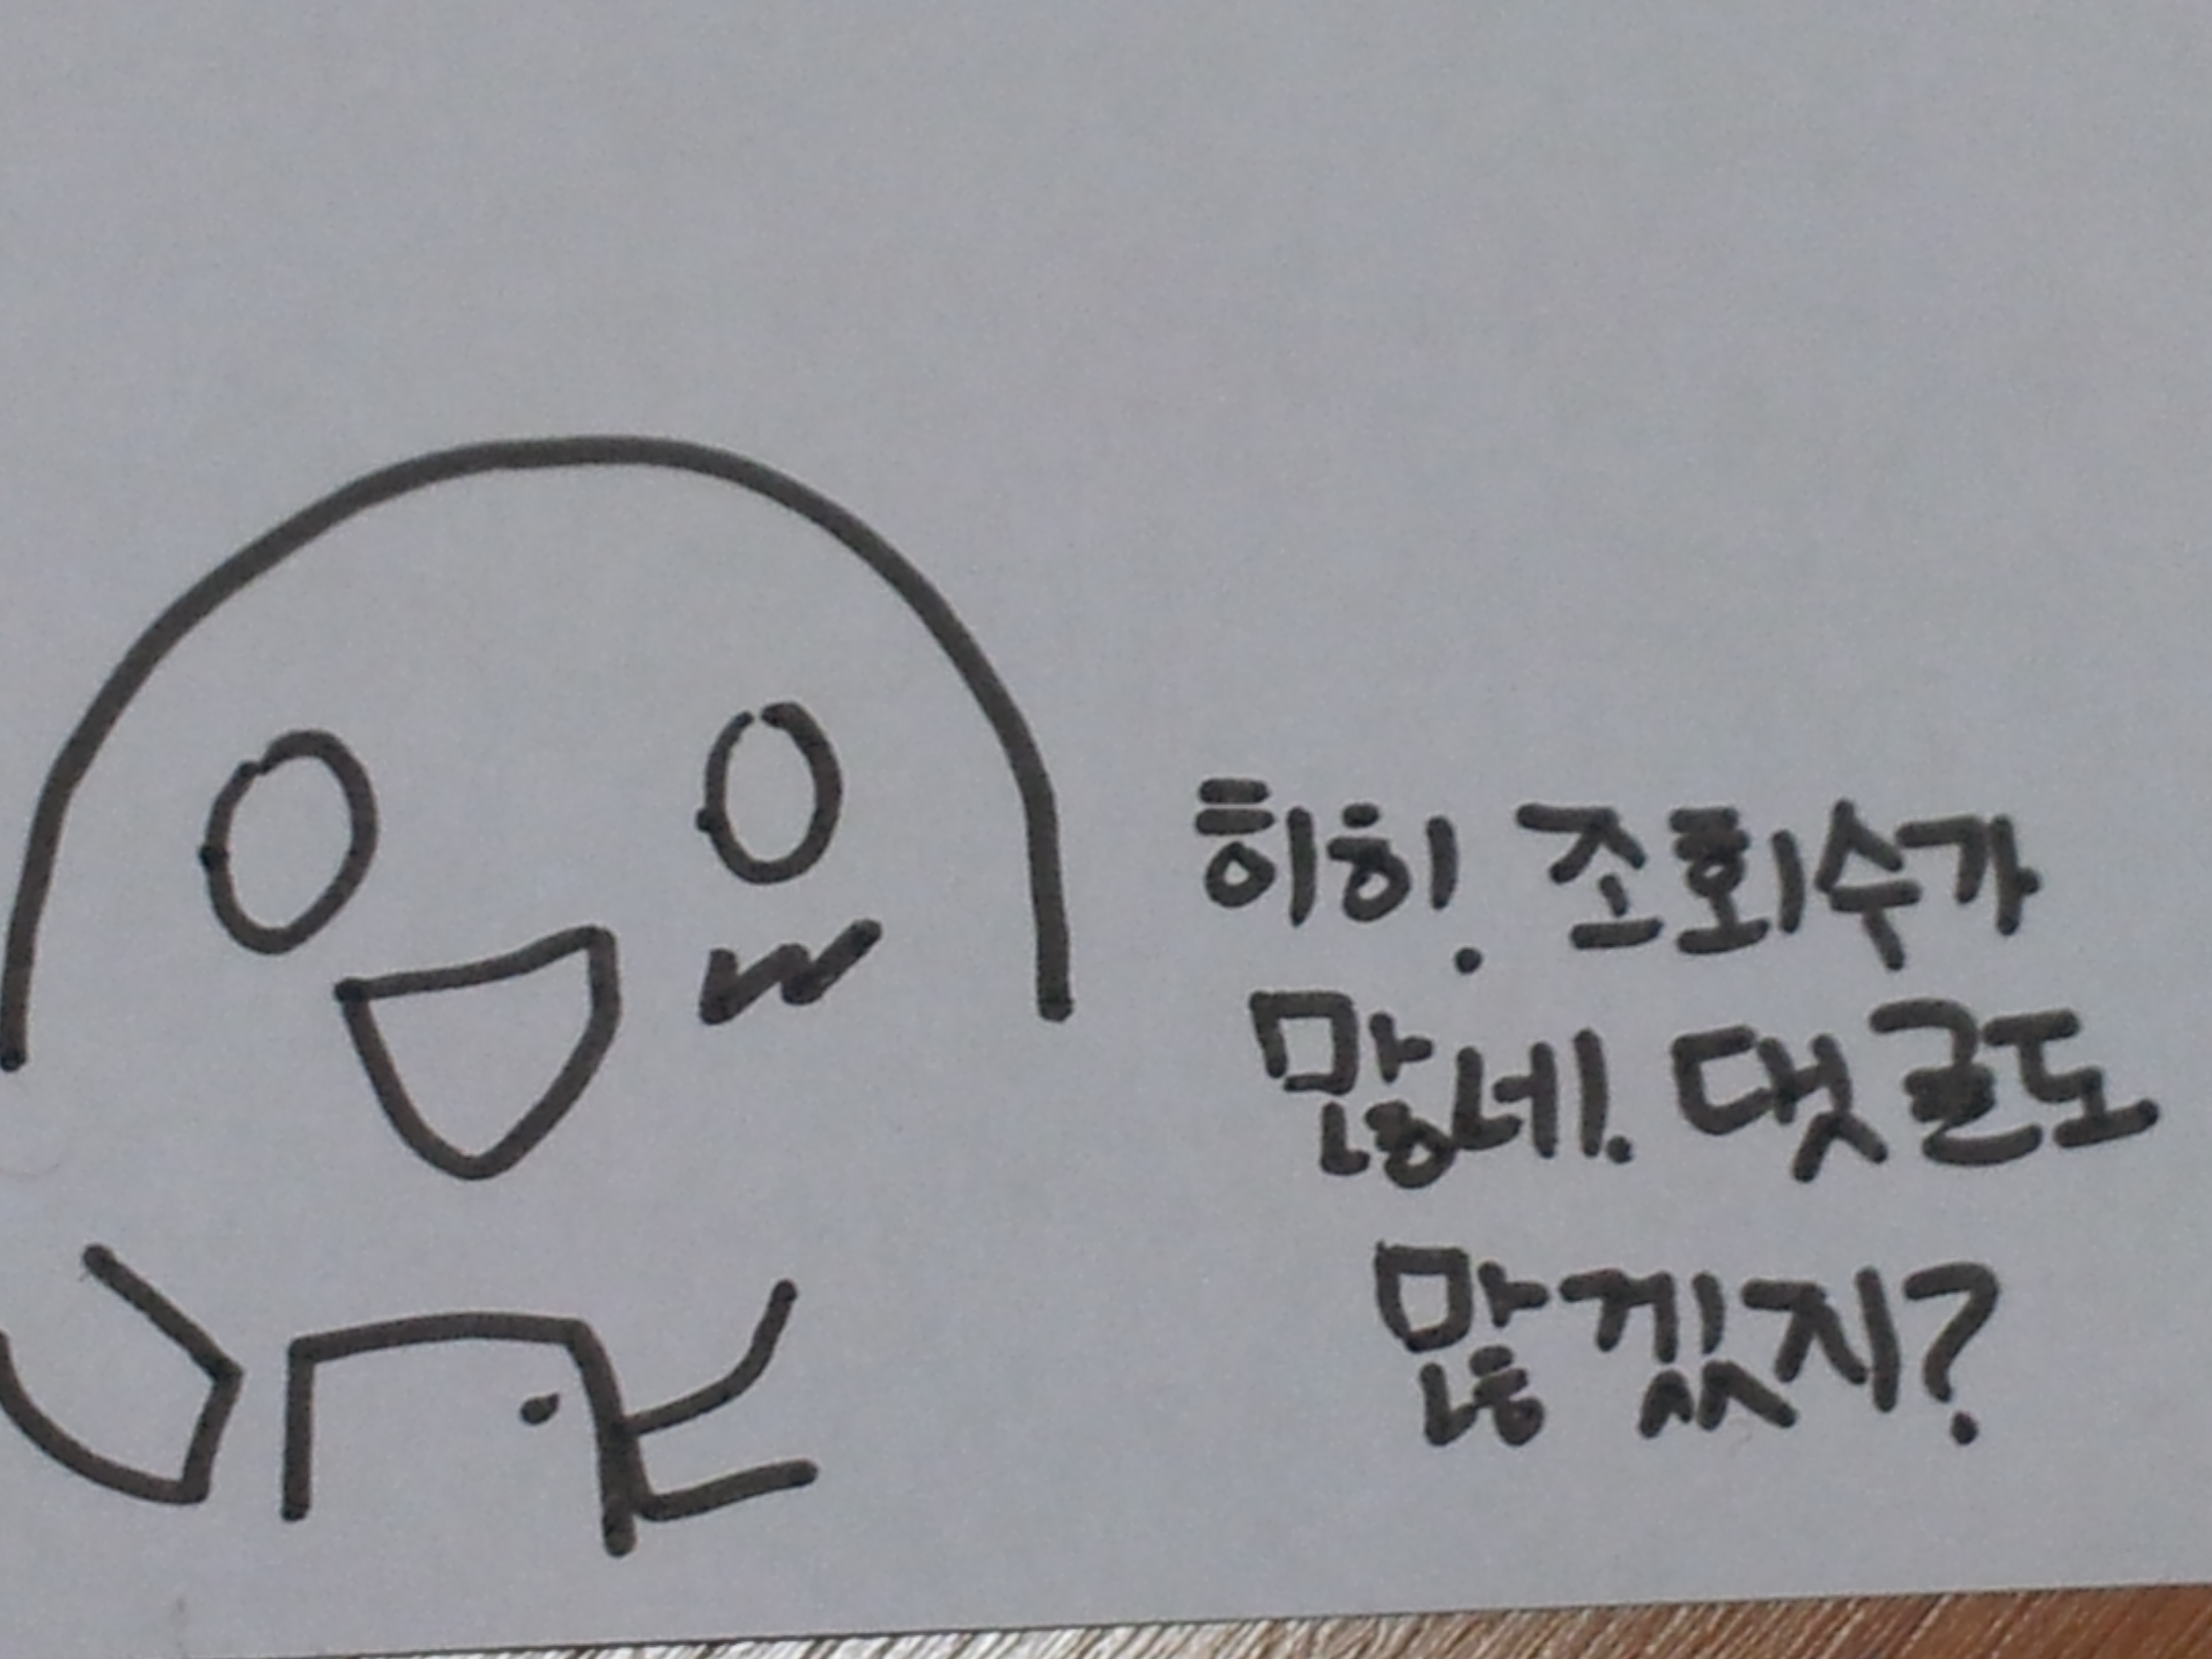 히히. 조회수가
많네. 댓글도
많겠지?